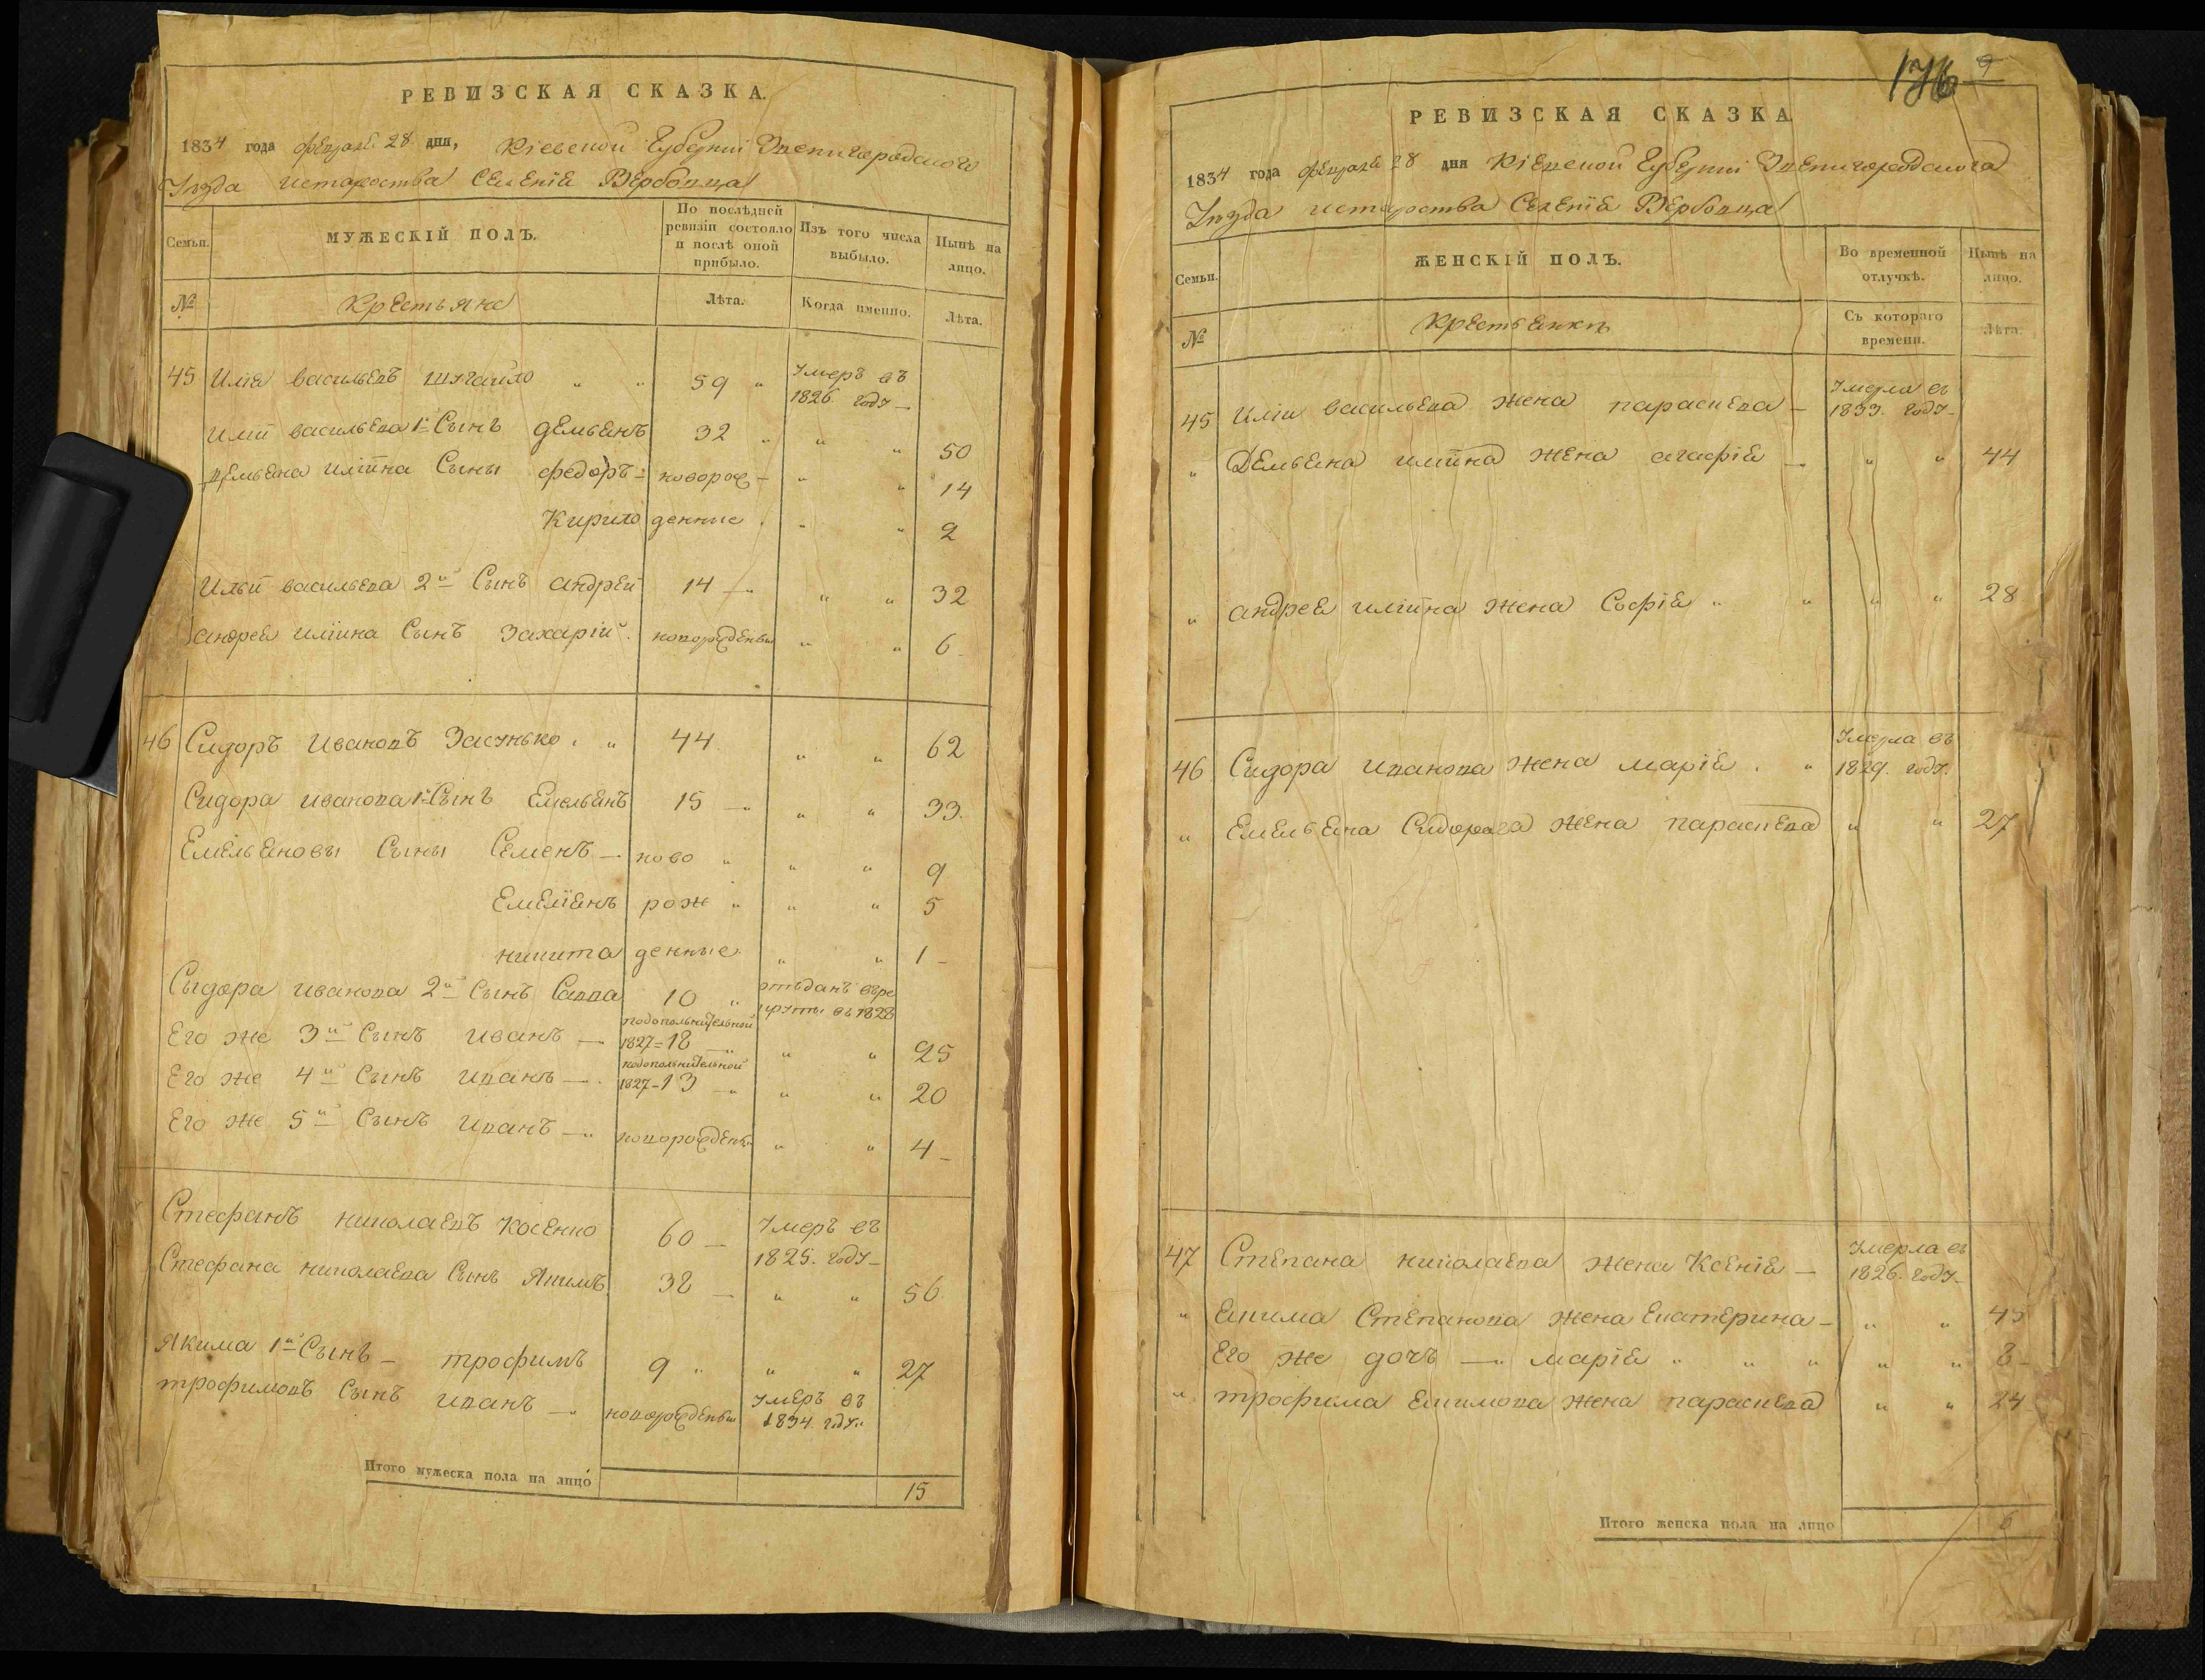 РЕВИЗСКАЯ СКАЗКА.
1834 года февраля 28 дня, Кіевской Губерніи Звенигородского
Уезда истароства Селеніе Вербовца
Семьи.
МУЖЕСКІЙ ПОЛЪ.
По послѣдней ревизіи состояло и послѣ оной прибыло.
Изъ того числа выбыло.
Нынѣ на лицо.
№
Крестьяне
Лѣта.
Когда именно.
Лѣта.
45 Илія васильевъ " " 59 " Умеръ въ 1826 году
Илій васильева 1й Сынъ демьенъ 32 " " " 50
демьена илійна Сыны федоръ новорож " " 14
Кирило денние " " 2
Ильй васильева 2й Сынъ андрей 14 " " 32
андрея илійна Сынъ Захарій новорожденъ " " 6
46 Сидоръ Ивановъ Засунько " 44 " " 62
Сидора иванова 1й Сынъ Емельенъ 15 " " 33
Емельеновы Сыны Семенъ ново " " " 9
Емеліенъ рож " " " 5
никита денние " " 1
Сыдора иванова 2й Сынъ Савва 10 " отъданъ врекруты въ 1828
Его же 3й Сынъ иванъ подопольнительной 1827=18 " " 25
Его же 4й Сынъ иванъ подопольнительной 1827-13 " " 20
Его же 5й Сынъ иванъ новорожденъ " " 4
Стефанъ николаевъ Косенко 60 Умеръ въ 1825. году
Стефана николаева Сынъ Якимъ 38 " " 56
Якима 1й Сынъ трофимъ 9 " " " 27
трофимовъ Сынъ иванъ новорожденъ Умеръ въ 1834. году
Итого мужеска пола на лицо 15
176 9
РЕВИЗСКАЯ СКАЗКА
1834 года февраля 28 дня Кіевской Губерніи Звенигородского
Уезда истароства Селеніе Вербовца
Семьи.
ЖЕНСКІЙ ПОЛЪ.
Во временной отлучкѣ.
Нынѣ на лицо.
№
Съ котораго времени.
Лѣта.
45 Иліи васильева жена параскева Умерла въ 1833. году
" Демьена илійна жена агафіе " " 44
" андрея илійна жена Софіе " " " " 28
46 Сидора иванова жена маріе " Умерла въ 1829. году.
" Емельена Сидорова жена параскева " " 27
47 Степана николаева жена Ксеніе Умерла въ 1826. году
" Екима Степанова жена Екатерина " " 45
Его же дочъ маріе " " " " " 8
" трофима Екимова жена параскева " " 24
Итого женска пола на лицо 6